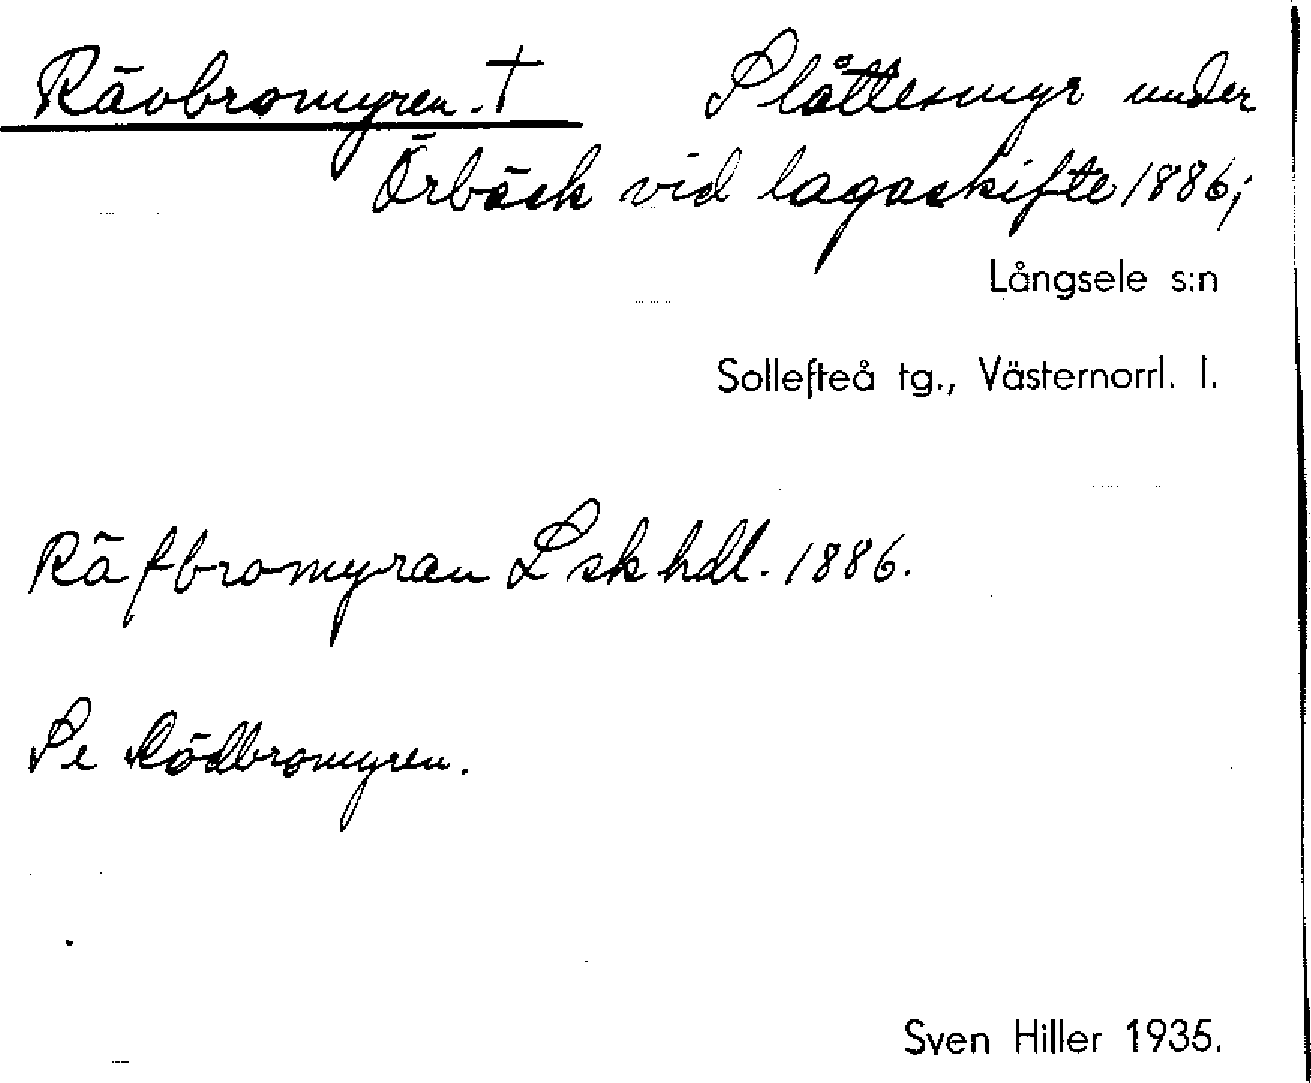 Rävbromyren. † Slåttesmyr under
Örbäck vid lagaskifte 1886;
Långsele s:n
Sollefteå tg., Västernorrl. l.
Räfbromyran Lskhdl. 1886.
Se Rödbromyren.
Sven Hiller 1935.